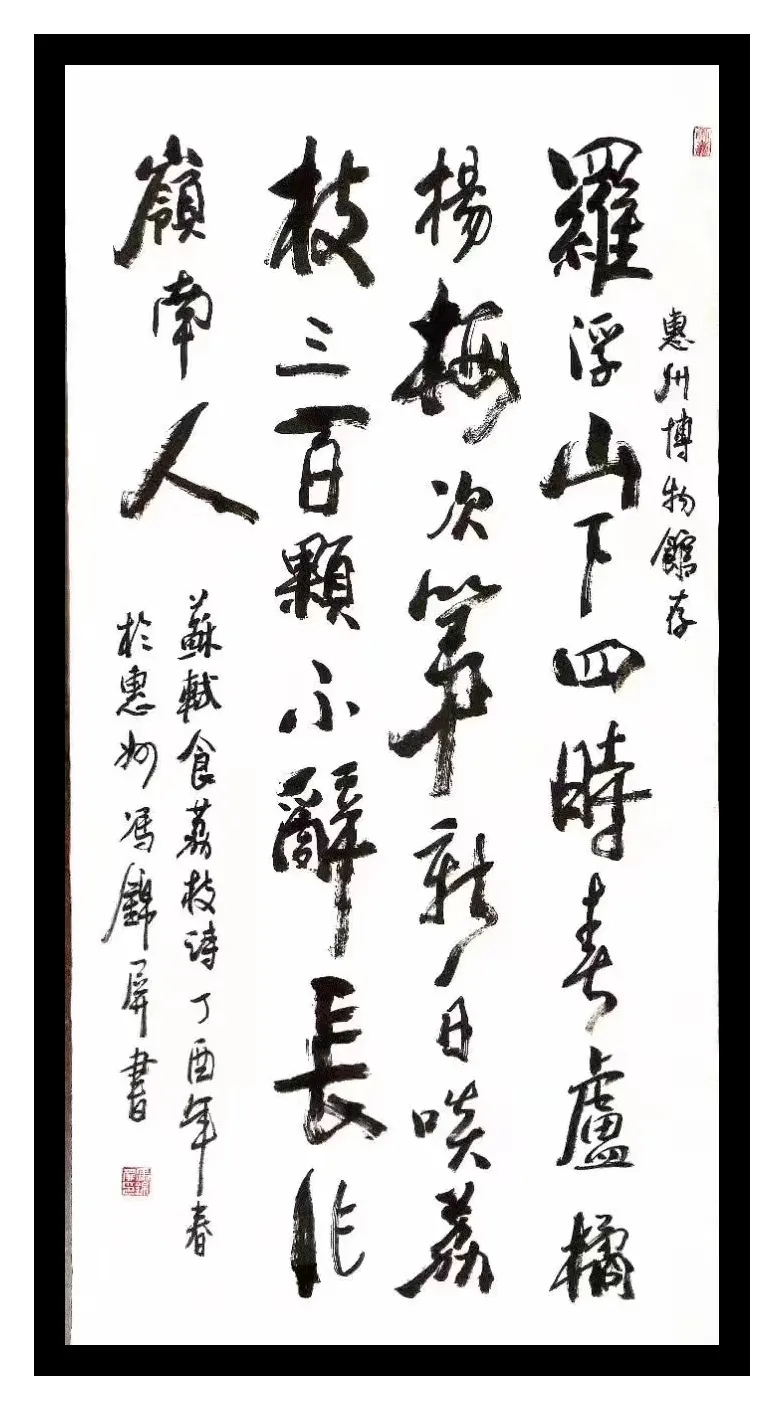 惠州博物館存
羅浮山下四時春盧橘
楊梅次第新日啖荔
枝三百顆不辭長作
嶺南人
蘇軾食荔枝詩丁酉年春
於惠州馮錦屏書